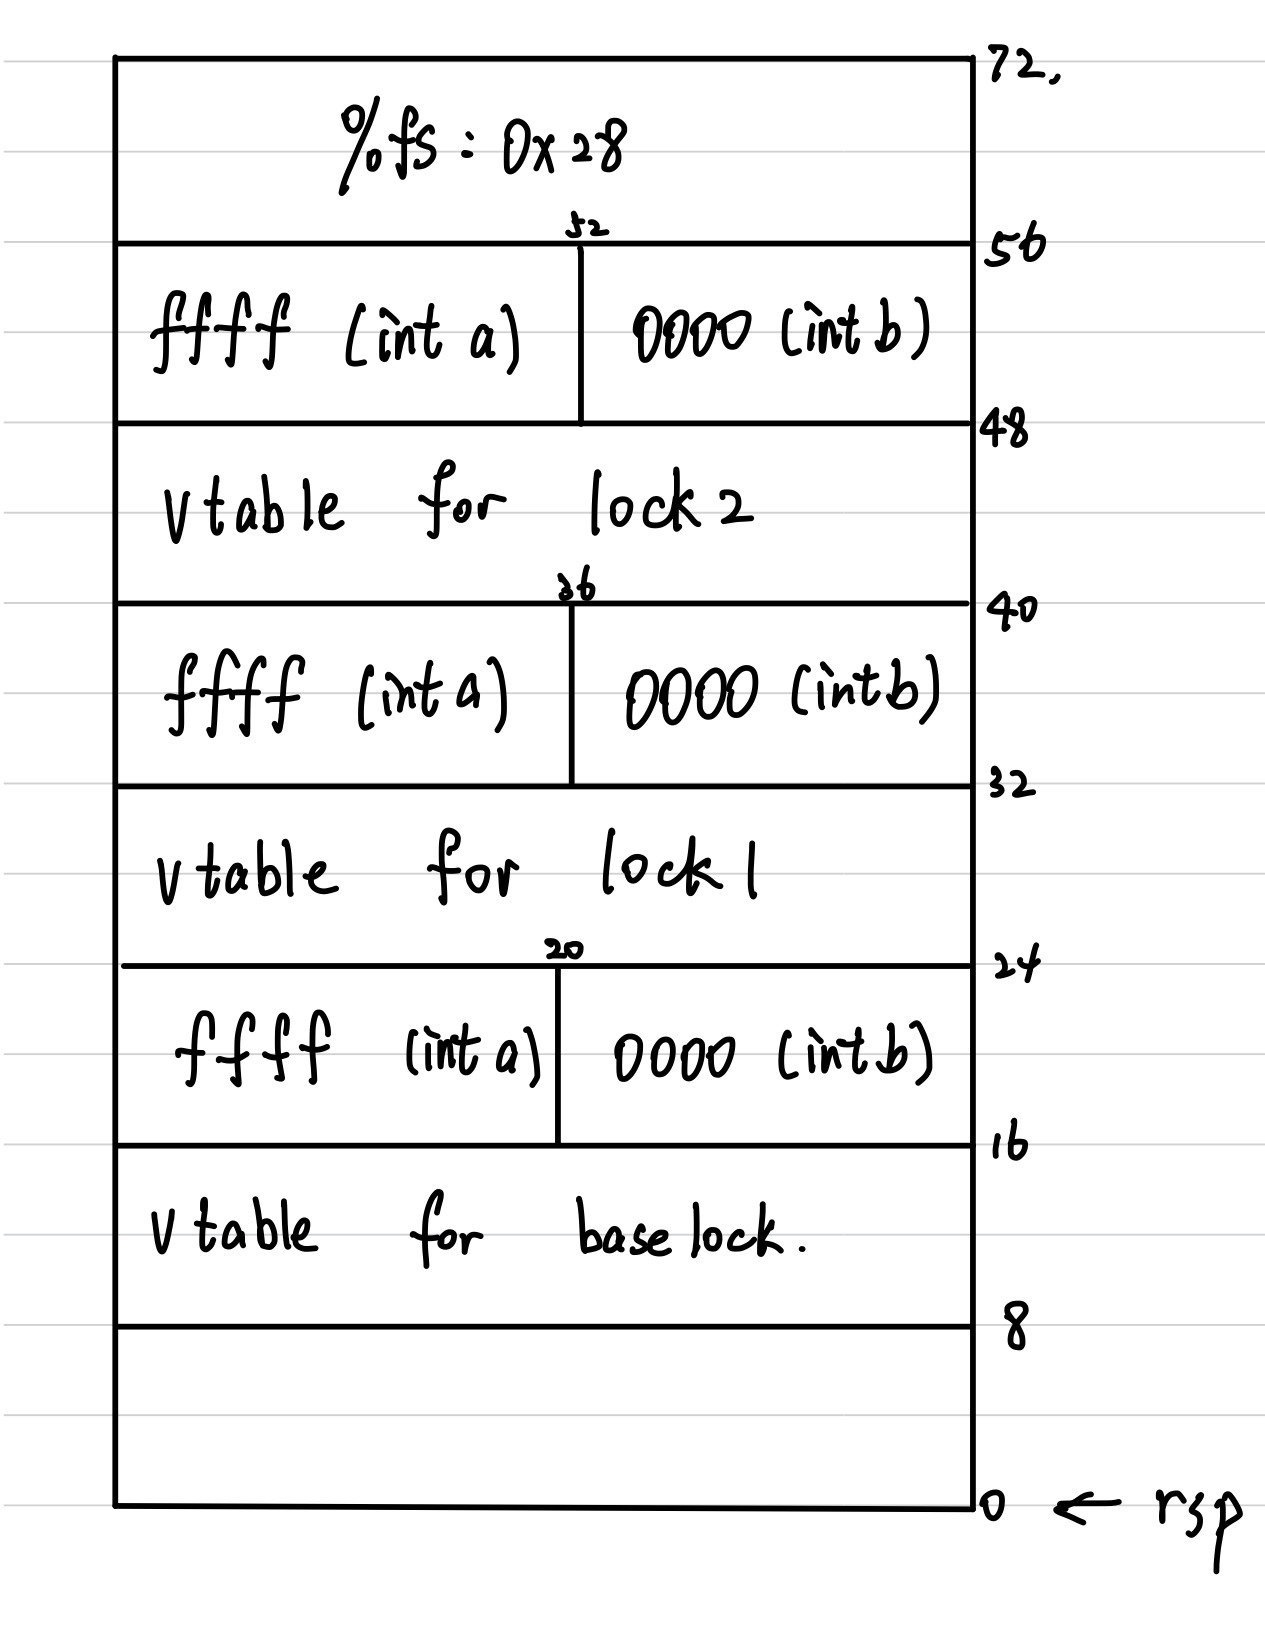 72,
%fs : 0x28
52
56
ffff (int a) 0000 (int b)
48
vtable for lock2
36
40
ffff (int a) 0000 (int b)
32
vtable for lock1
20
24
ffff (int a) 0000 (int b)
16
vtable for baselock.
8
0 ← rsp